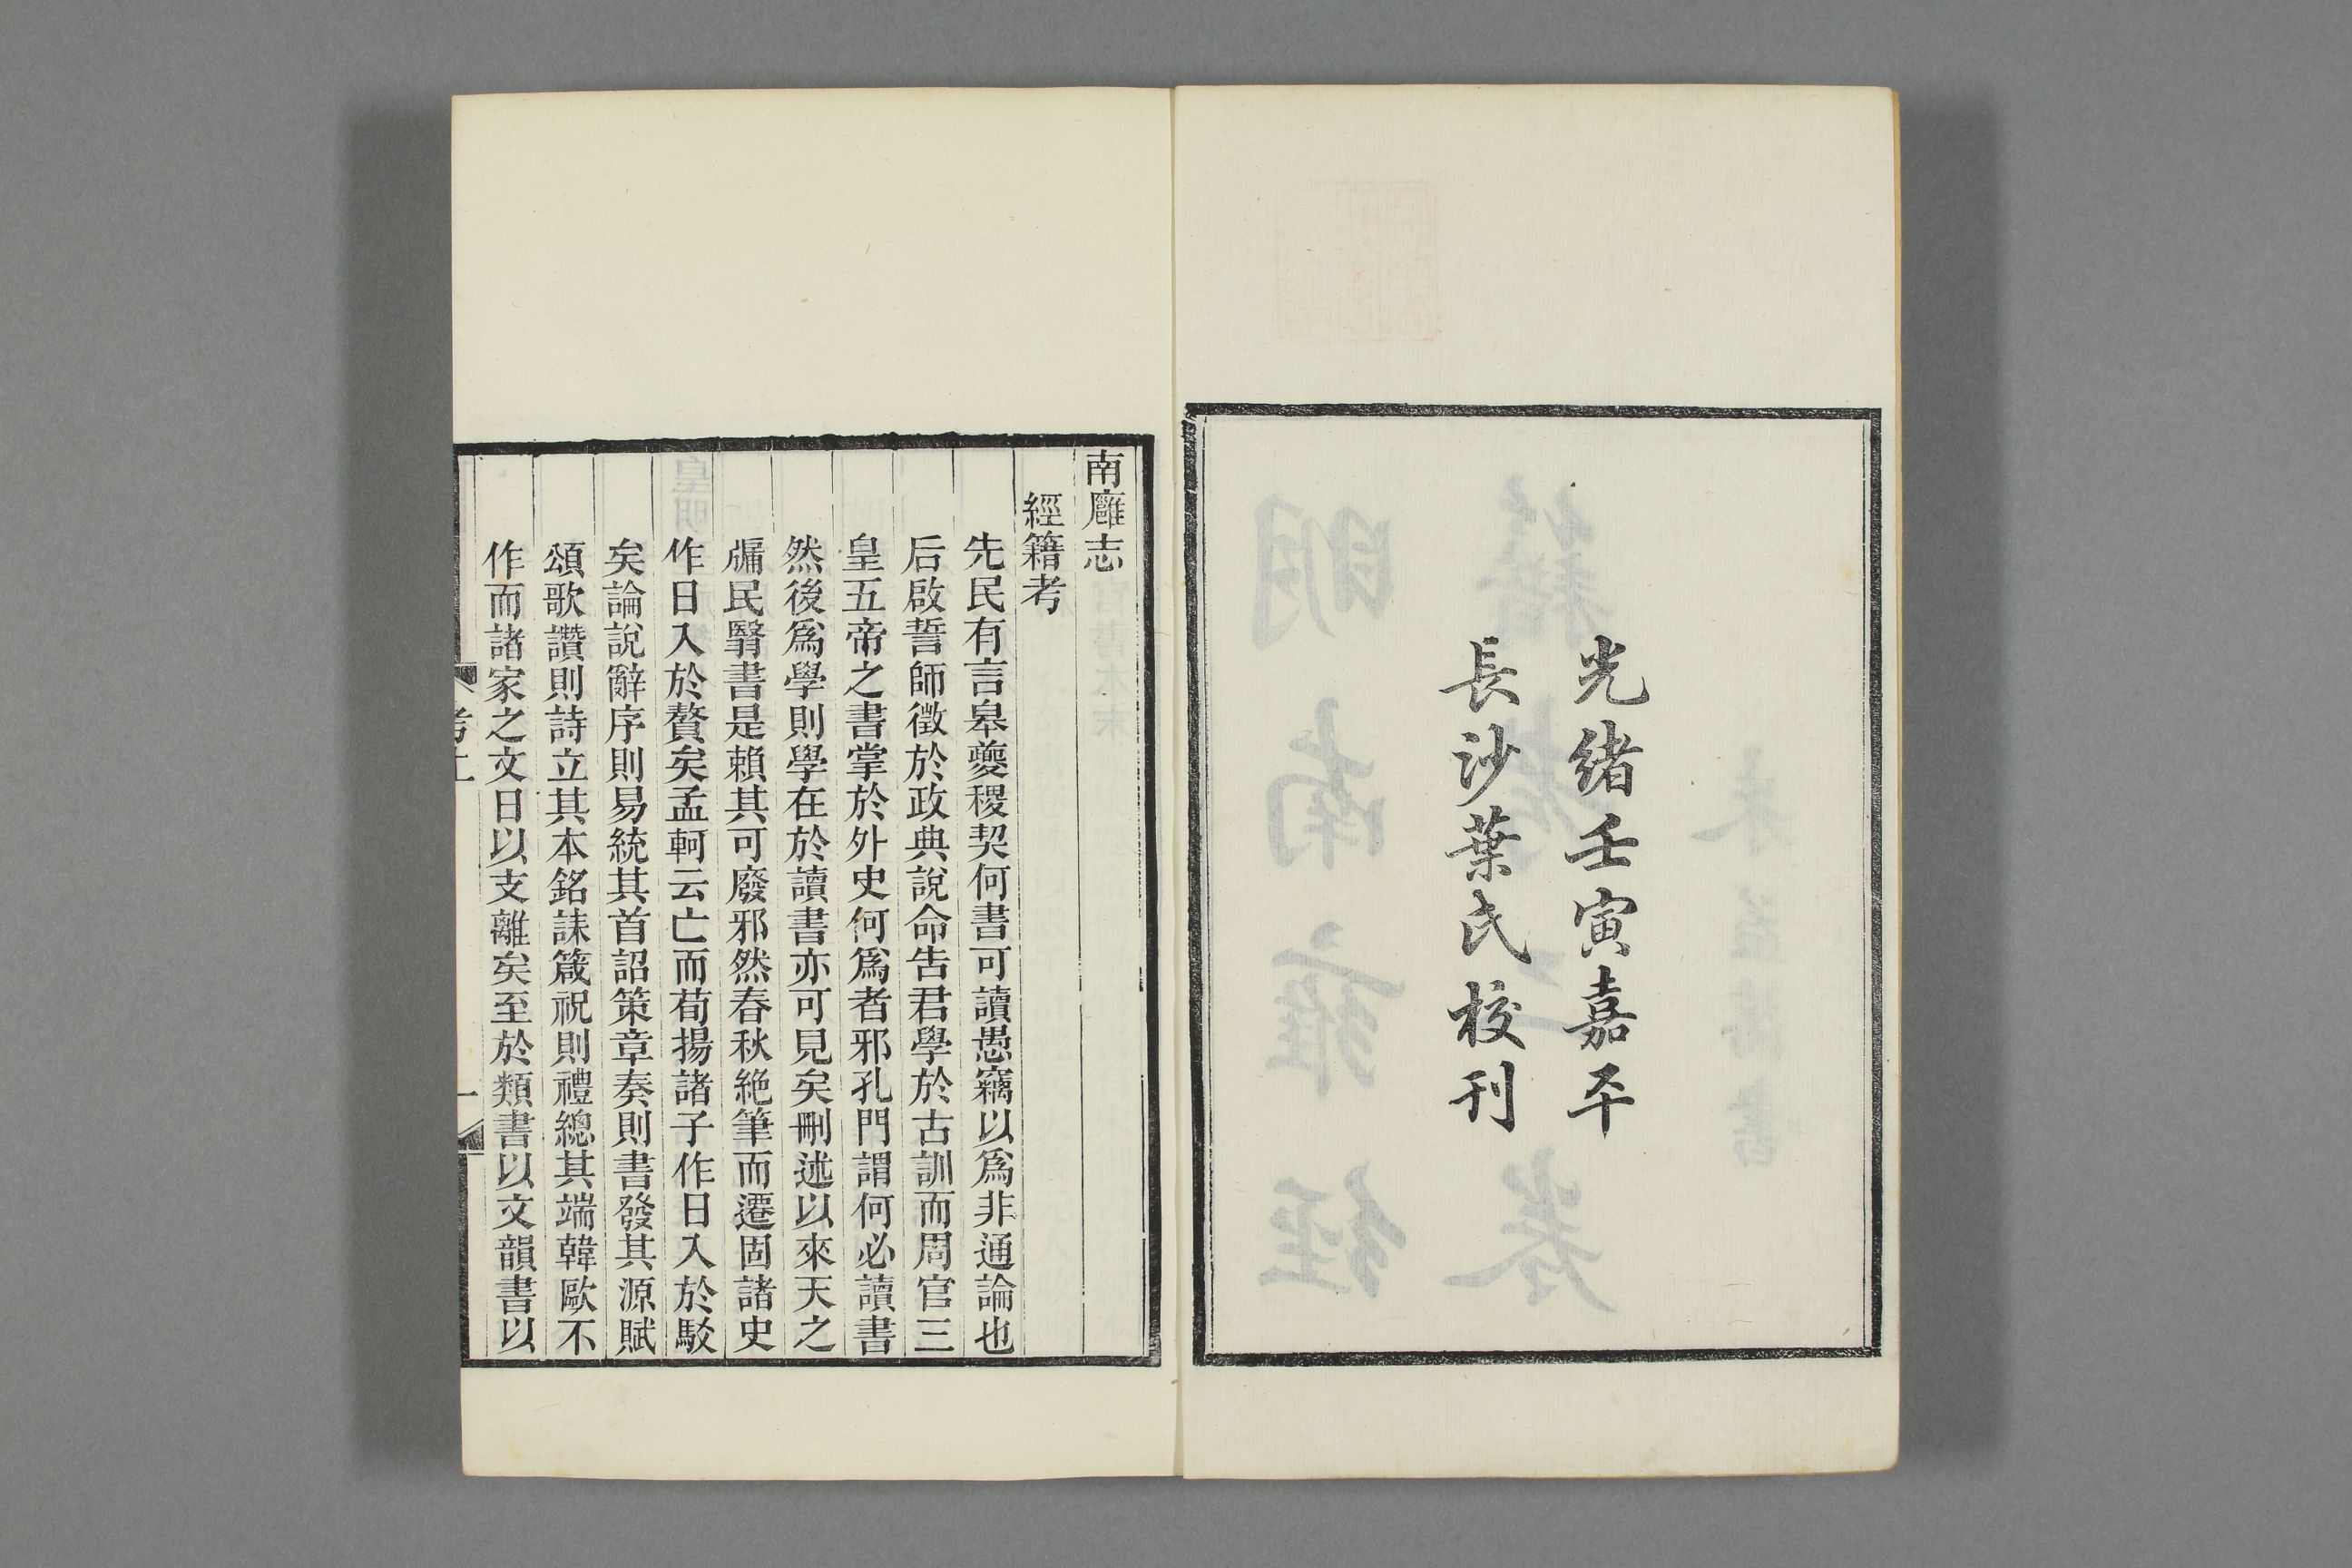 光緒壬寅嘉平
長沙葉氏校刊
南廱志
經籍考
先民有言皋夔稷契何書可讀愚竊以爲非通論也
后啟誓師徵於政典說命告君學於古訓而周官三
皇五帝之書掌於外史何爲者邪孔門謂何必讀書
然後爲學則學在於讀書亦可見矣刪述以來天之
牖民翳書是賴其可廢邪然春秋絶筆而遷固諸史
作日入於贅矣孟軻云亡而荀揚諸子作日入於駁
矣論說辭序則易統其首詔策章奏則書發其源賦
頌歌讚則詩立其本銘誄箴祝則禮總其端韓歐不
作而諸家之文日以支離矣至於類書以文韻書以
考上
一